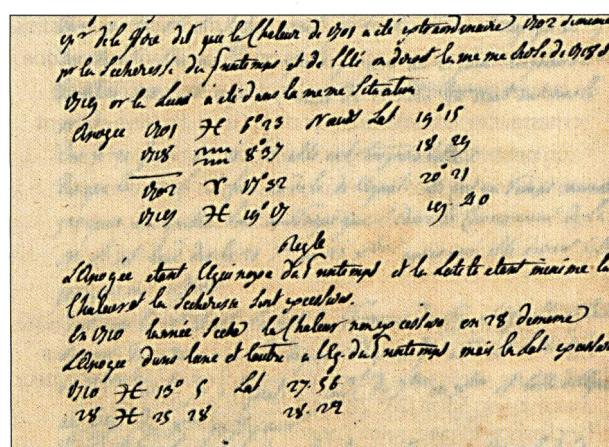 mr de la Hire dit que la Chaleur de 1701 a été extraordinaire 1702 de meme
pr la Secheresse du printemps et de l'Eté on diroit la meme chose de 1718 &
1719 or la Lune a été dans la meme Situation
Apogée 1701 ♓ 6° 23 Lat 19° 15
1718 ♒ 8° 37 18 29
1702 ♈ 17° 32 20° 21
1719 ♓ 19° 17 19 40
Regle
L'Apogée etant a l'Equinoxe du Printemps et la Latit etant minime la
Chaleur et la Secheresse sont excessives.
En 1710 l'année Seche la Chaleur non excessive en 28 de meme
L'Apogée dans l'une et l'autre a l'Eq. du Printemps mais la Lat. excessive
1710 ♓ 13° 5 Lat 27. 56
28 ♓ 25 28 28. 22